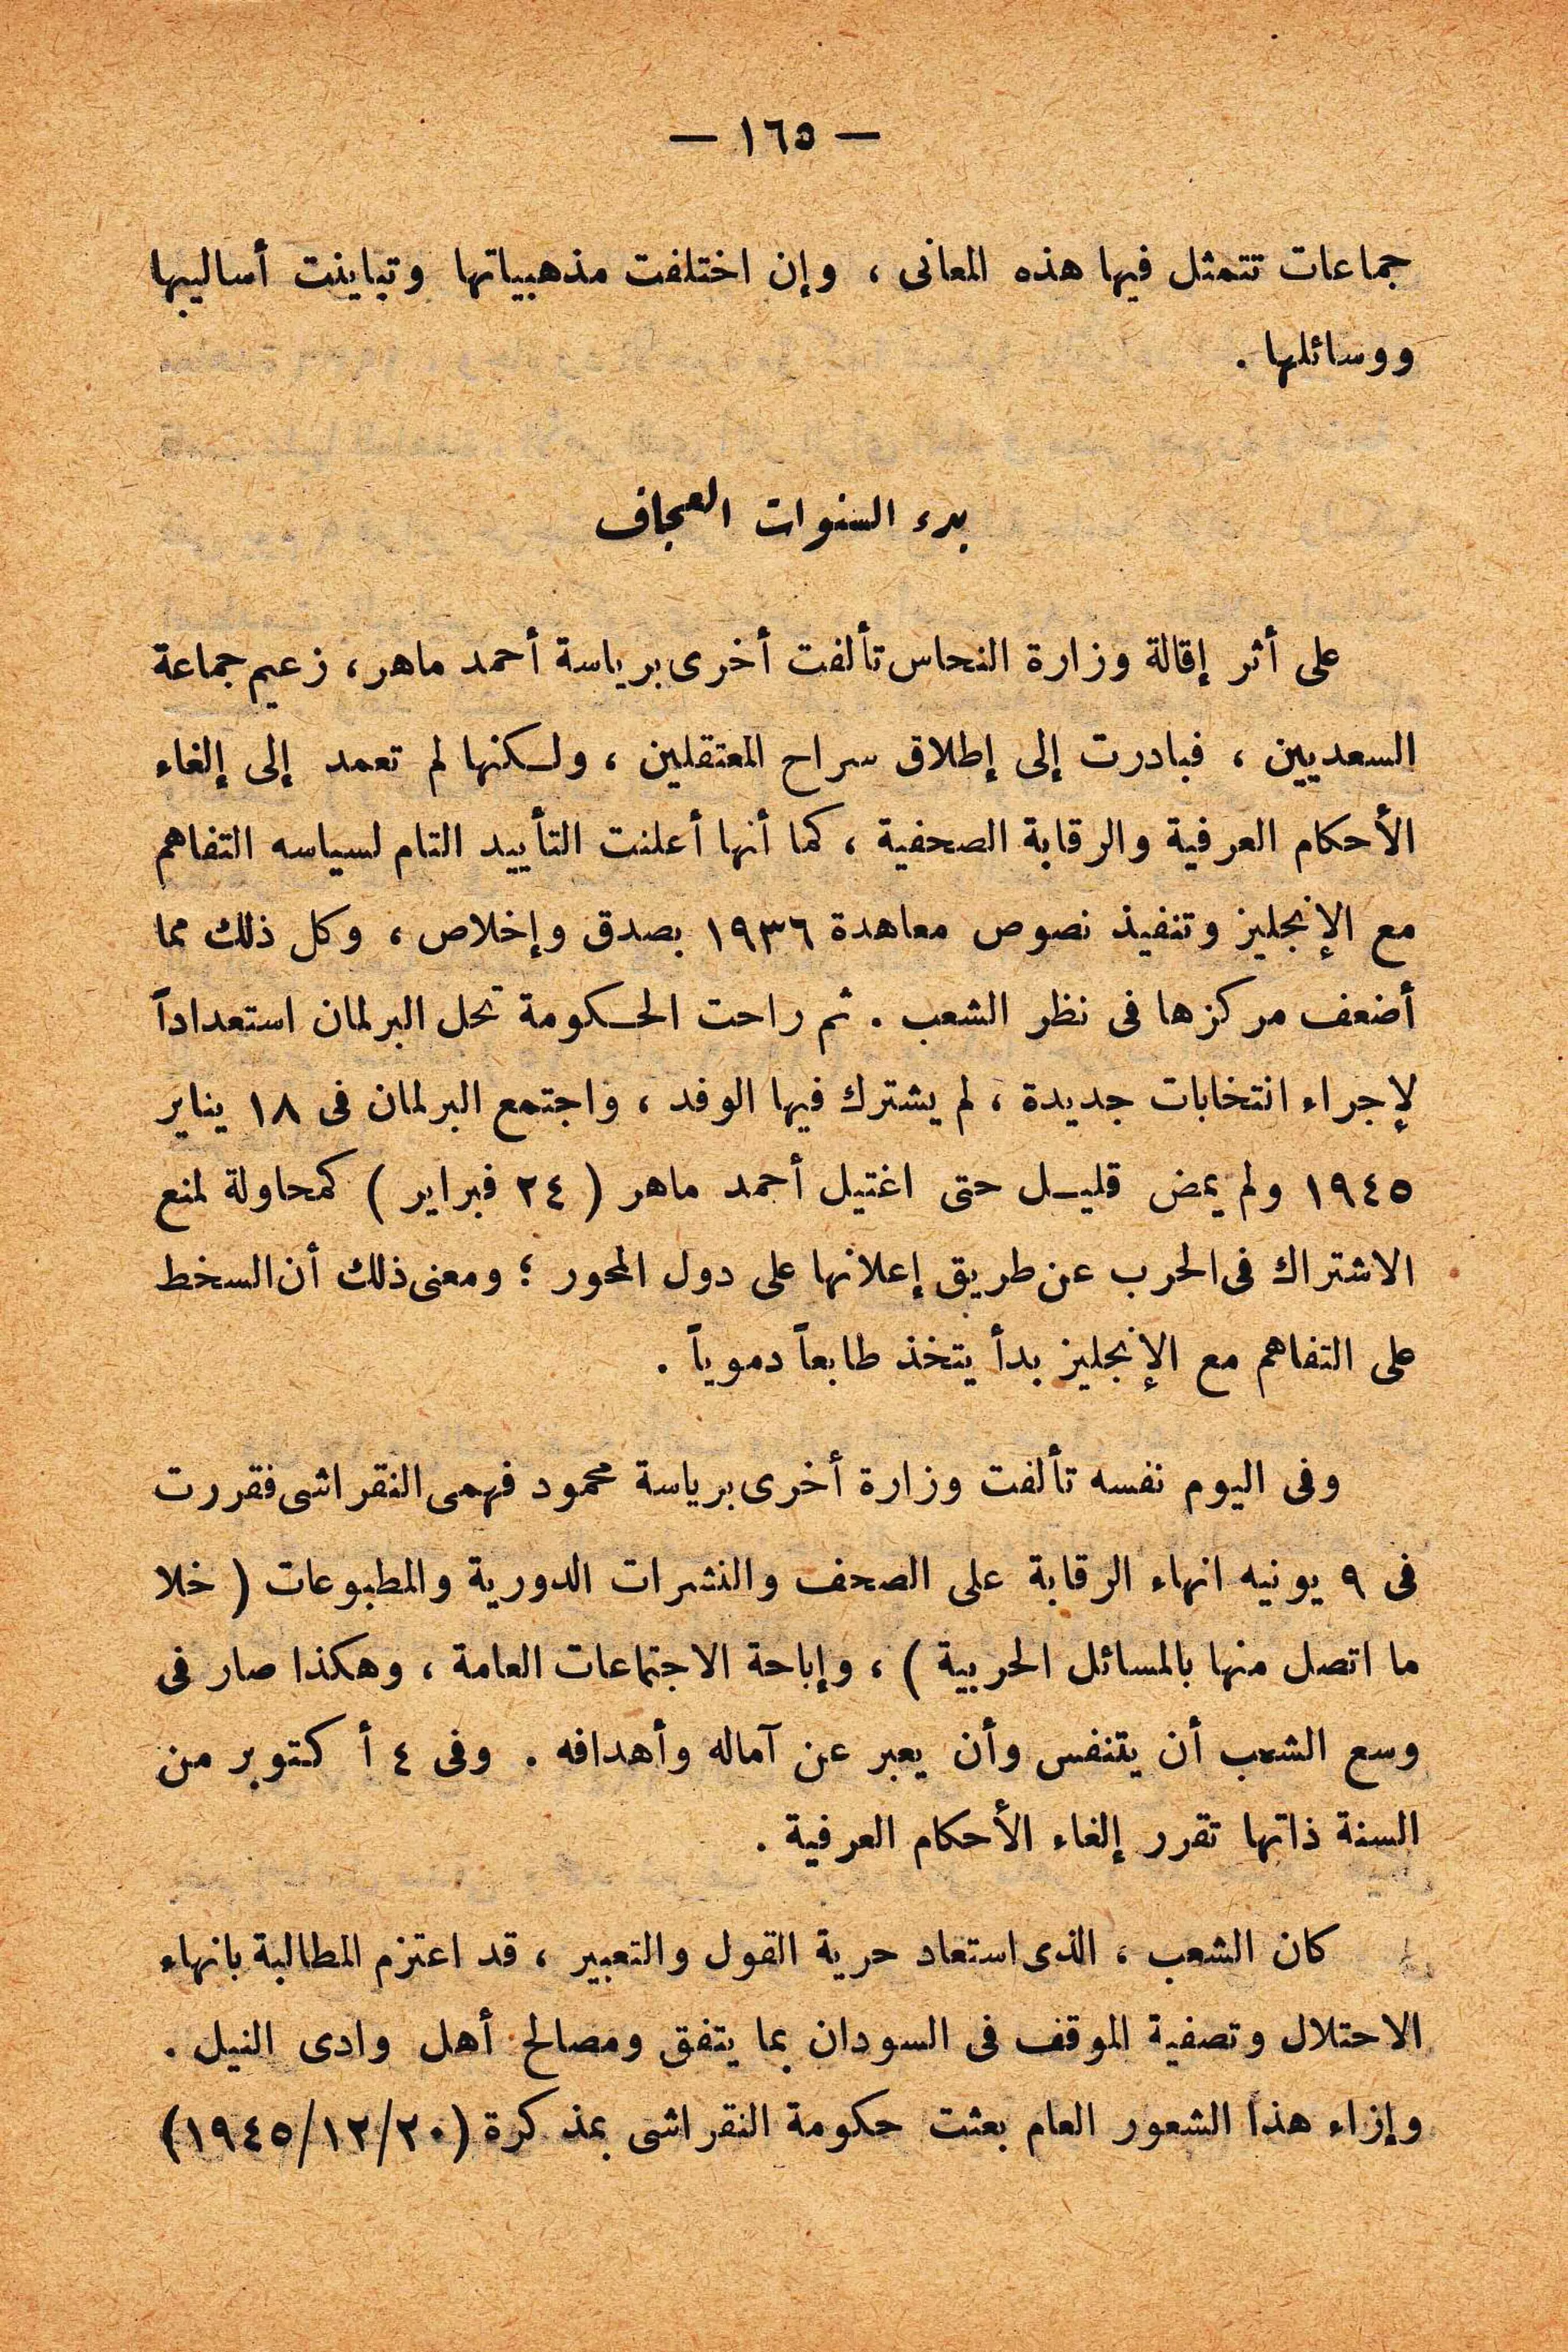 — ١٦٥ —
جماعات تتمثل فيها هذه المعانى ، وإن اختلفت مذهبياتها وتباينت أساليبها
ووسائلها .
بدء السنوات العجاف
على أثر إقالة وزارة النحاس تألفت أخرى برياسة أحمد ماهر، زعيم جماعة
السعديين ، فبادرت إلى إطلاق سراح المعتقلين ، ولكنها لم تعمد إلى إلغاء
الأحكام العرفية والرقابة الصحفية ، كما أنها أعلنت التأييد التام لسياسه التفاهم
مع الإنجليز وتنفيذ نصوص معاهدة ١٩٣٦ بصدق وإخلاص ، وكل ذلك مما
أضعف مركزها فى نظر الشعب . ثم راحت الحكومة تحل البرلمان استعداداً
لإجراء انتخابات جديدة ، لم يشترك فيها الوفد ، واجتمع البرلمان فى ١٨ يناير
١٩٤٥ ولم يمض قليل حتى اغتيل أحمد ماهر ( ٢٤ فبراير ) كمحاولة لمنع
الاشتراك فى الحرب عن طريق إعلانها على دول المحور ؛ ومعنى ذلك أن السخط
على التفاهم مع الإنجليز بدأ يتخذ طابعاً دموياً .
وفى اليوم نفسه تألفت وزارة أخرى برياسة محمود فهمى النقراشى فقررت
فى ٩ يونيه انهاء الرقابة على الصحف والنشرات الدورية والمطبوعات ( خلا
ما اتصل منها بالمسائل الحربية ) ، وإباحة الاجتماعات العامة ، وهكذا صار فى
وسع الشعب أن يتنفس وأن يعبر عن آماله وأهدافه . وفى ٤ أكتوبر من
السنة ذاتها تقرر إلغاء الأحكام العرفية .
كان الشعب ، الذى استعاد حرية القول والتعبير ، قد اعتزم المطالبة بانهاء
الاحتلال وتصفية الموقف فى السودان بما يتفق ومصالح أهل وادى النيل .
وإزاء هذا الشعور العام بعثت حكومة النقراشى بمذكرة (١٩٤٥/١٢/٢٠)